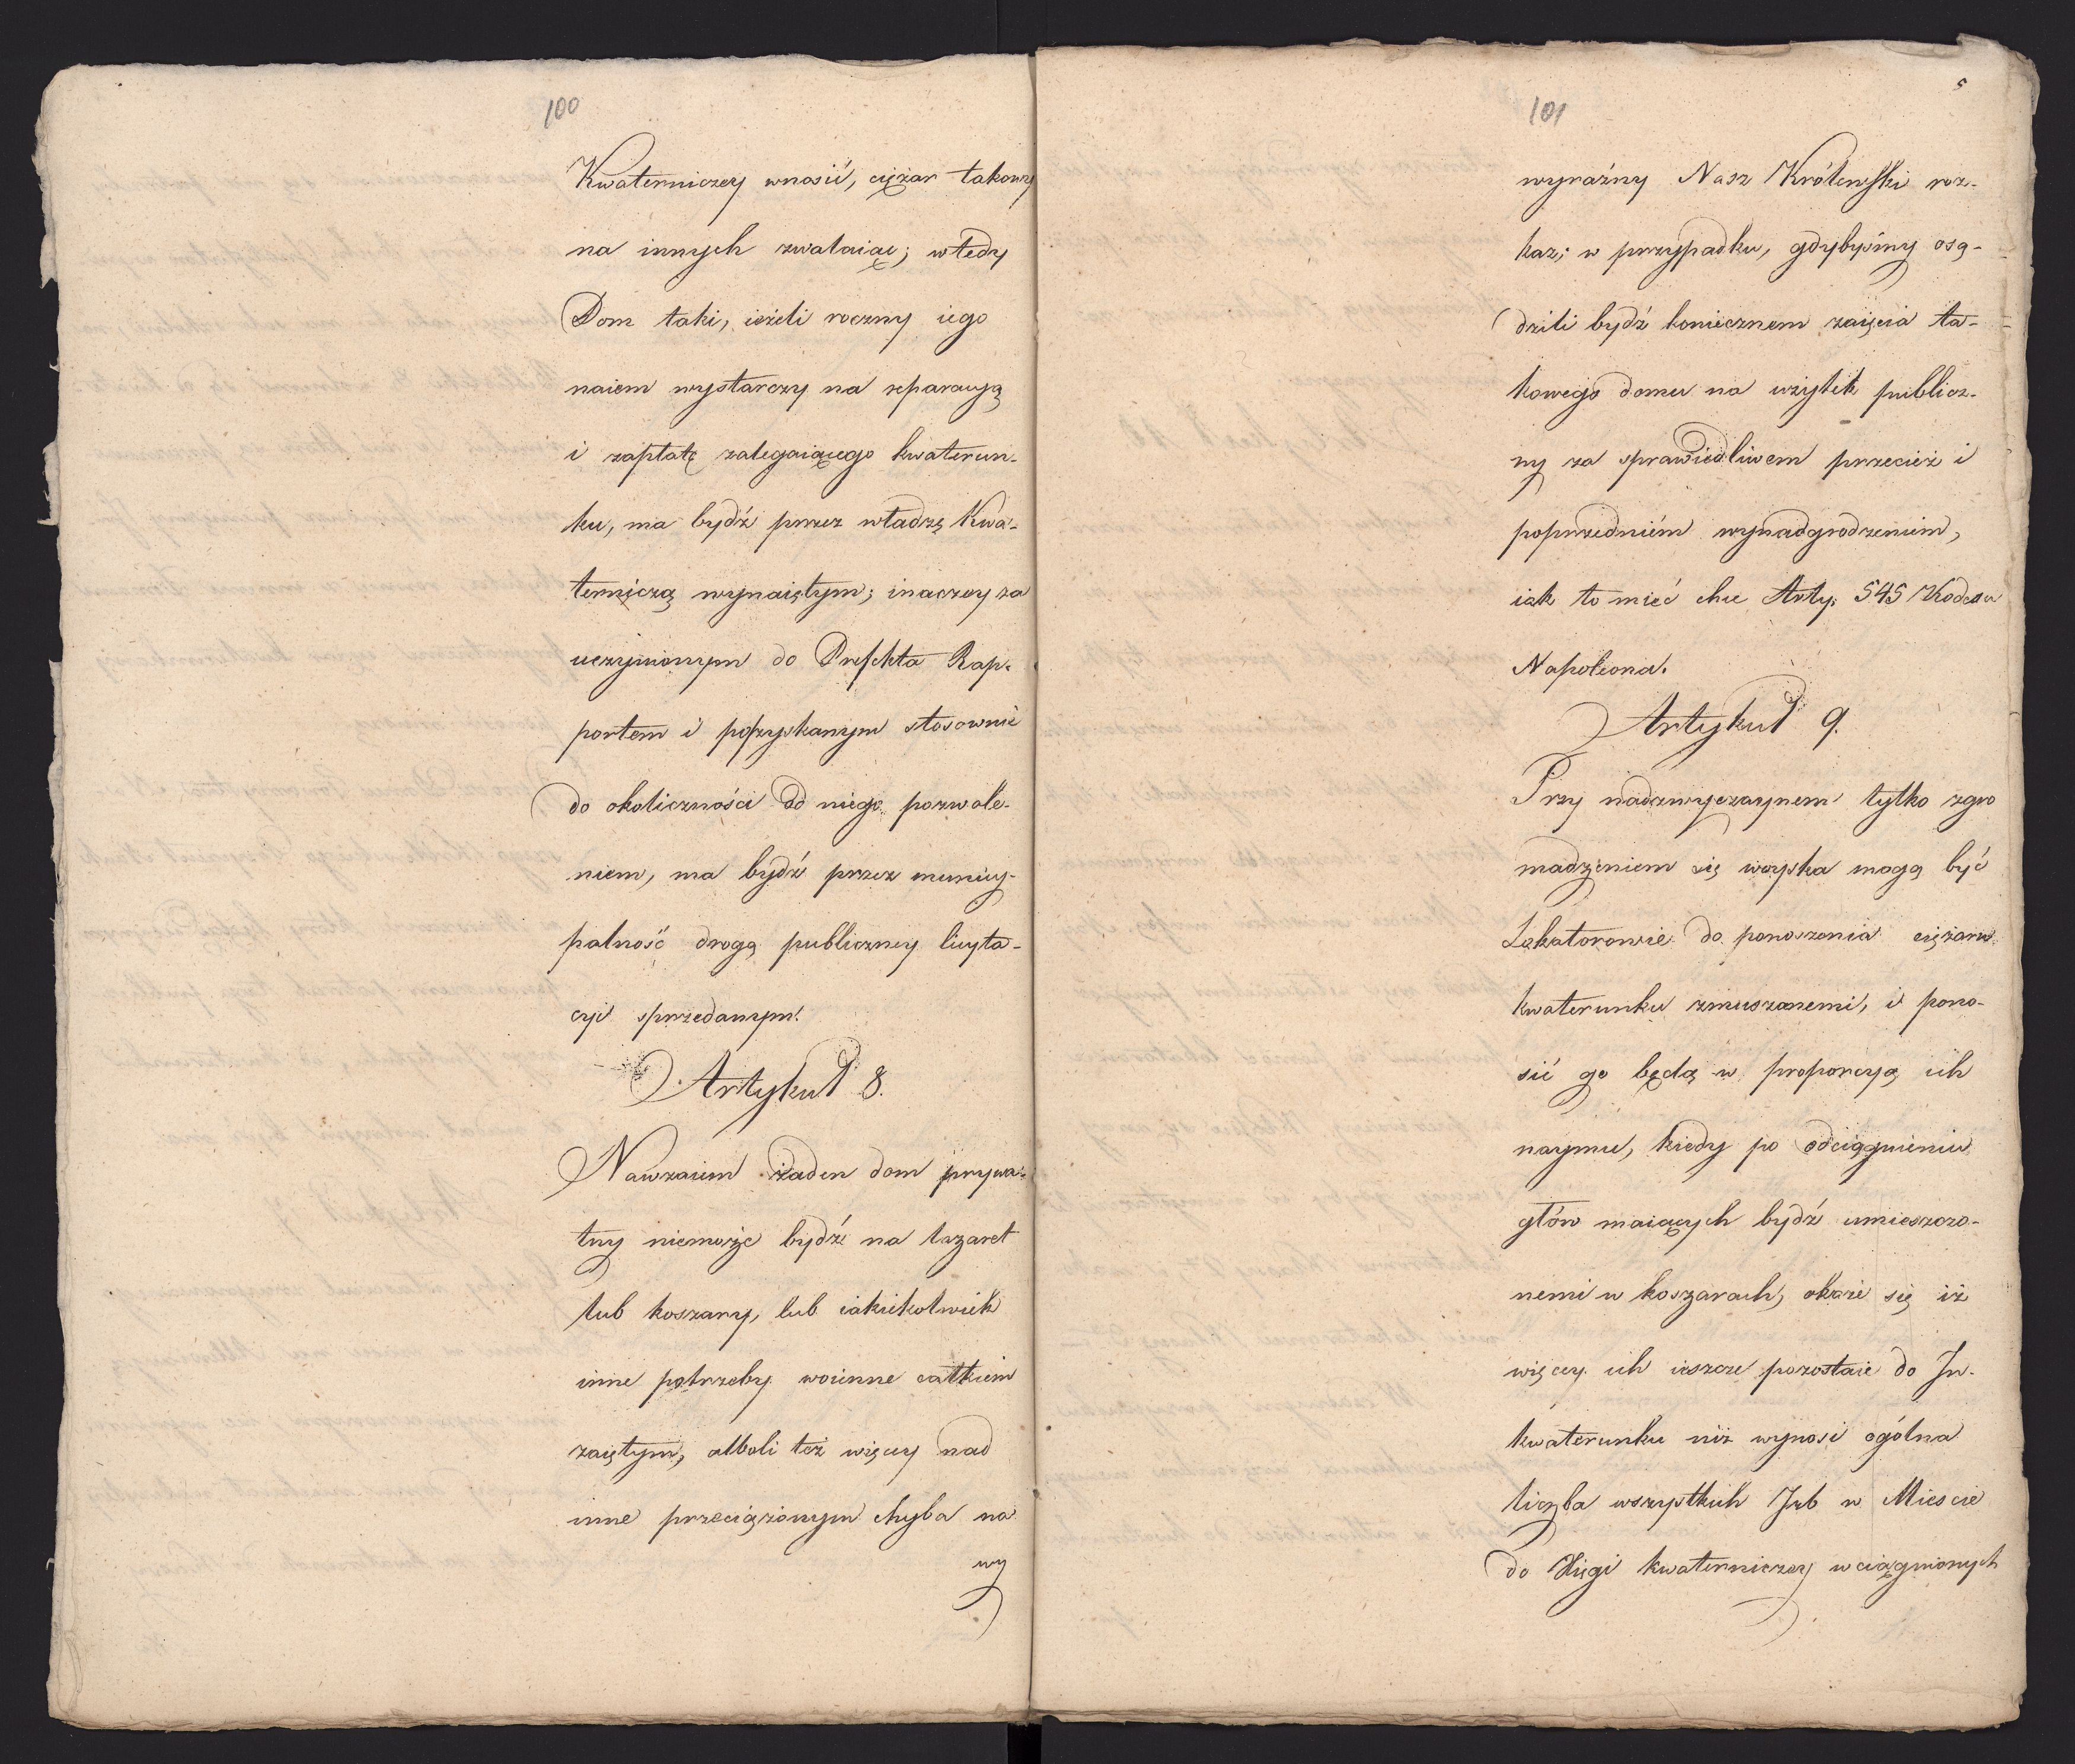 100
Kwaterniczey wnosić, ciężar takowy
na innych zwalaiąc; wtedy
Dom taki, ieżeli roczny iego
naiem wystarczy na reparacyą
i zapłatę zalegaiącego kwaterun-
ku, ma bydź przez władzę Kwa-
terniczą wynaiętym; inaczey za
uczynionym do Prefekta Rap-
portem i pozyskanym stosownie
do okoliczności od niego pozwole-
niem, ma bydź przez municy-
palność drogą publiczney licyta-
cyi sprzedanym.
Artykuł 8.
Nawzaiem żaden dom prywa-
tny niemoże bydź na lazaret
lub koszary, lub iakiekolwiek
inne potrzeby woienne całkiem
zaiętym, alboli też więcey nad
inne przeciążonym chyba na
wy
5
101
wyraźny Nasz Królewski roz-
kaz; w przypadku, gdybyśmy osą-
dzili bydź koniecznem zaięcia ta-
kowego domu na użytek publicz-
ny za sprawiedliwem przecież i
poprzedniém wynadgrodzeniem,
iak to mieć chce Arty: 545 Kodexu
Napoleona.
Artykuł 9.
Przy nadzwyczaynem tylko zgro
madzeniem się woyska mogą być
Lokatorowie do ponoszenia ciężaru
kwaterunku zmuszonemi, i pono-
sić go będą w proporcyą ich
naymu, kiedy po odciągnieniu
głów maiących bydź umieszczo-
nemi w koszarach, okaże się iż
więcey ich ieszcze pozostaie do In-
kwaterunku niż wynosi ogólna
liczba wszystkich Izb w Miescie
do Xięgi kwaterniczey wciągnionych